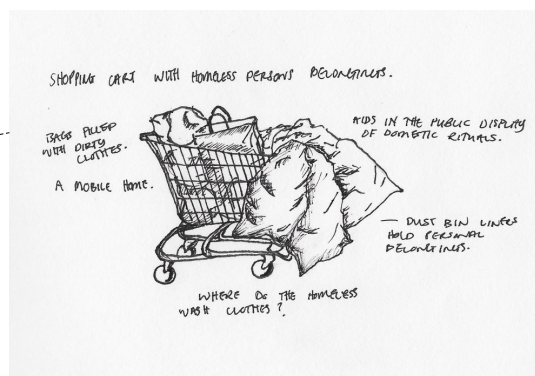 SHOPPING CART WITH HOMELESS PERSONS BELONGINGS.
BAGS FILLED
WITH DIRTY
CLOTHES.
A MOBILE HOME.
AIDS IN THE PUBLIC DISPLAY
OF DOMETIC RITUALS.
— DUST BIN LINERS
HOLD PERSONAL
BELONGINGS.
WHERE DO THE HOMELESS
WASH CLOTHES?